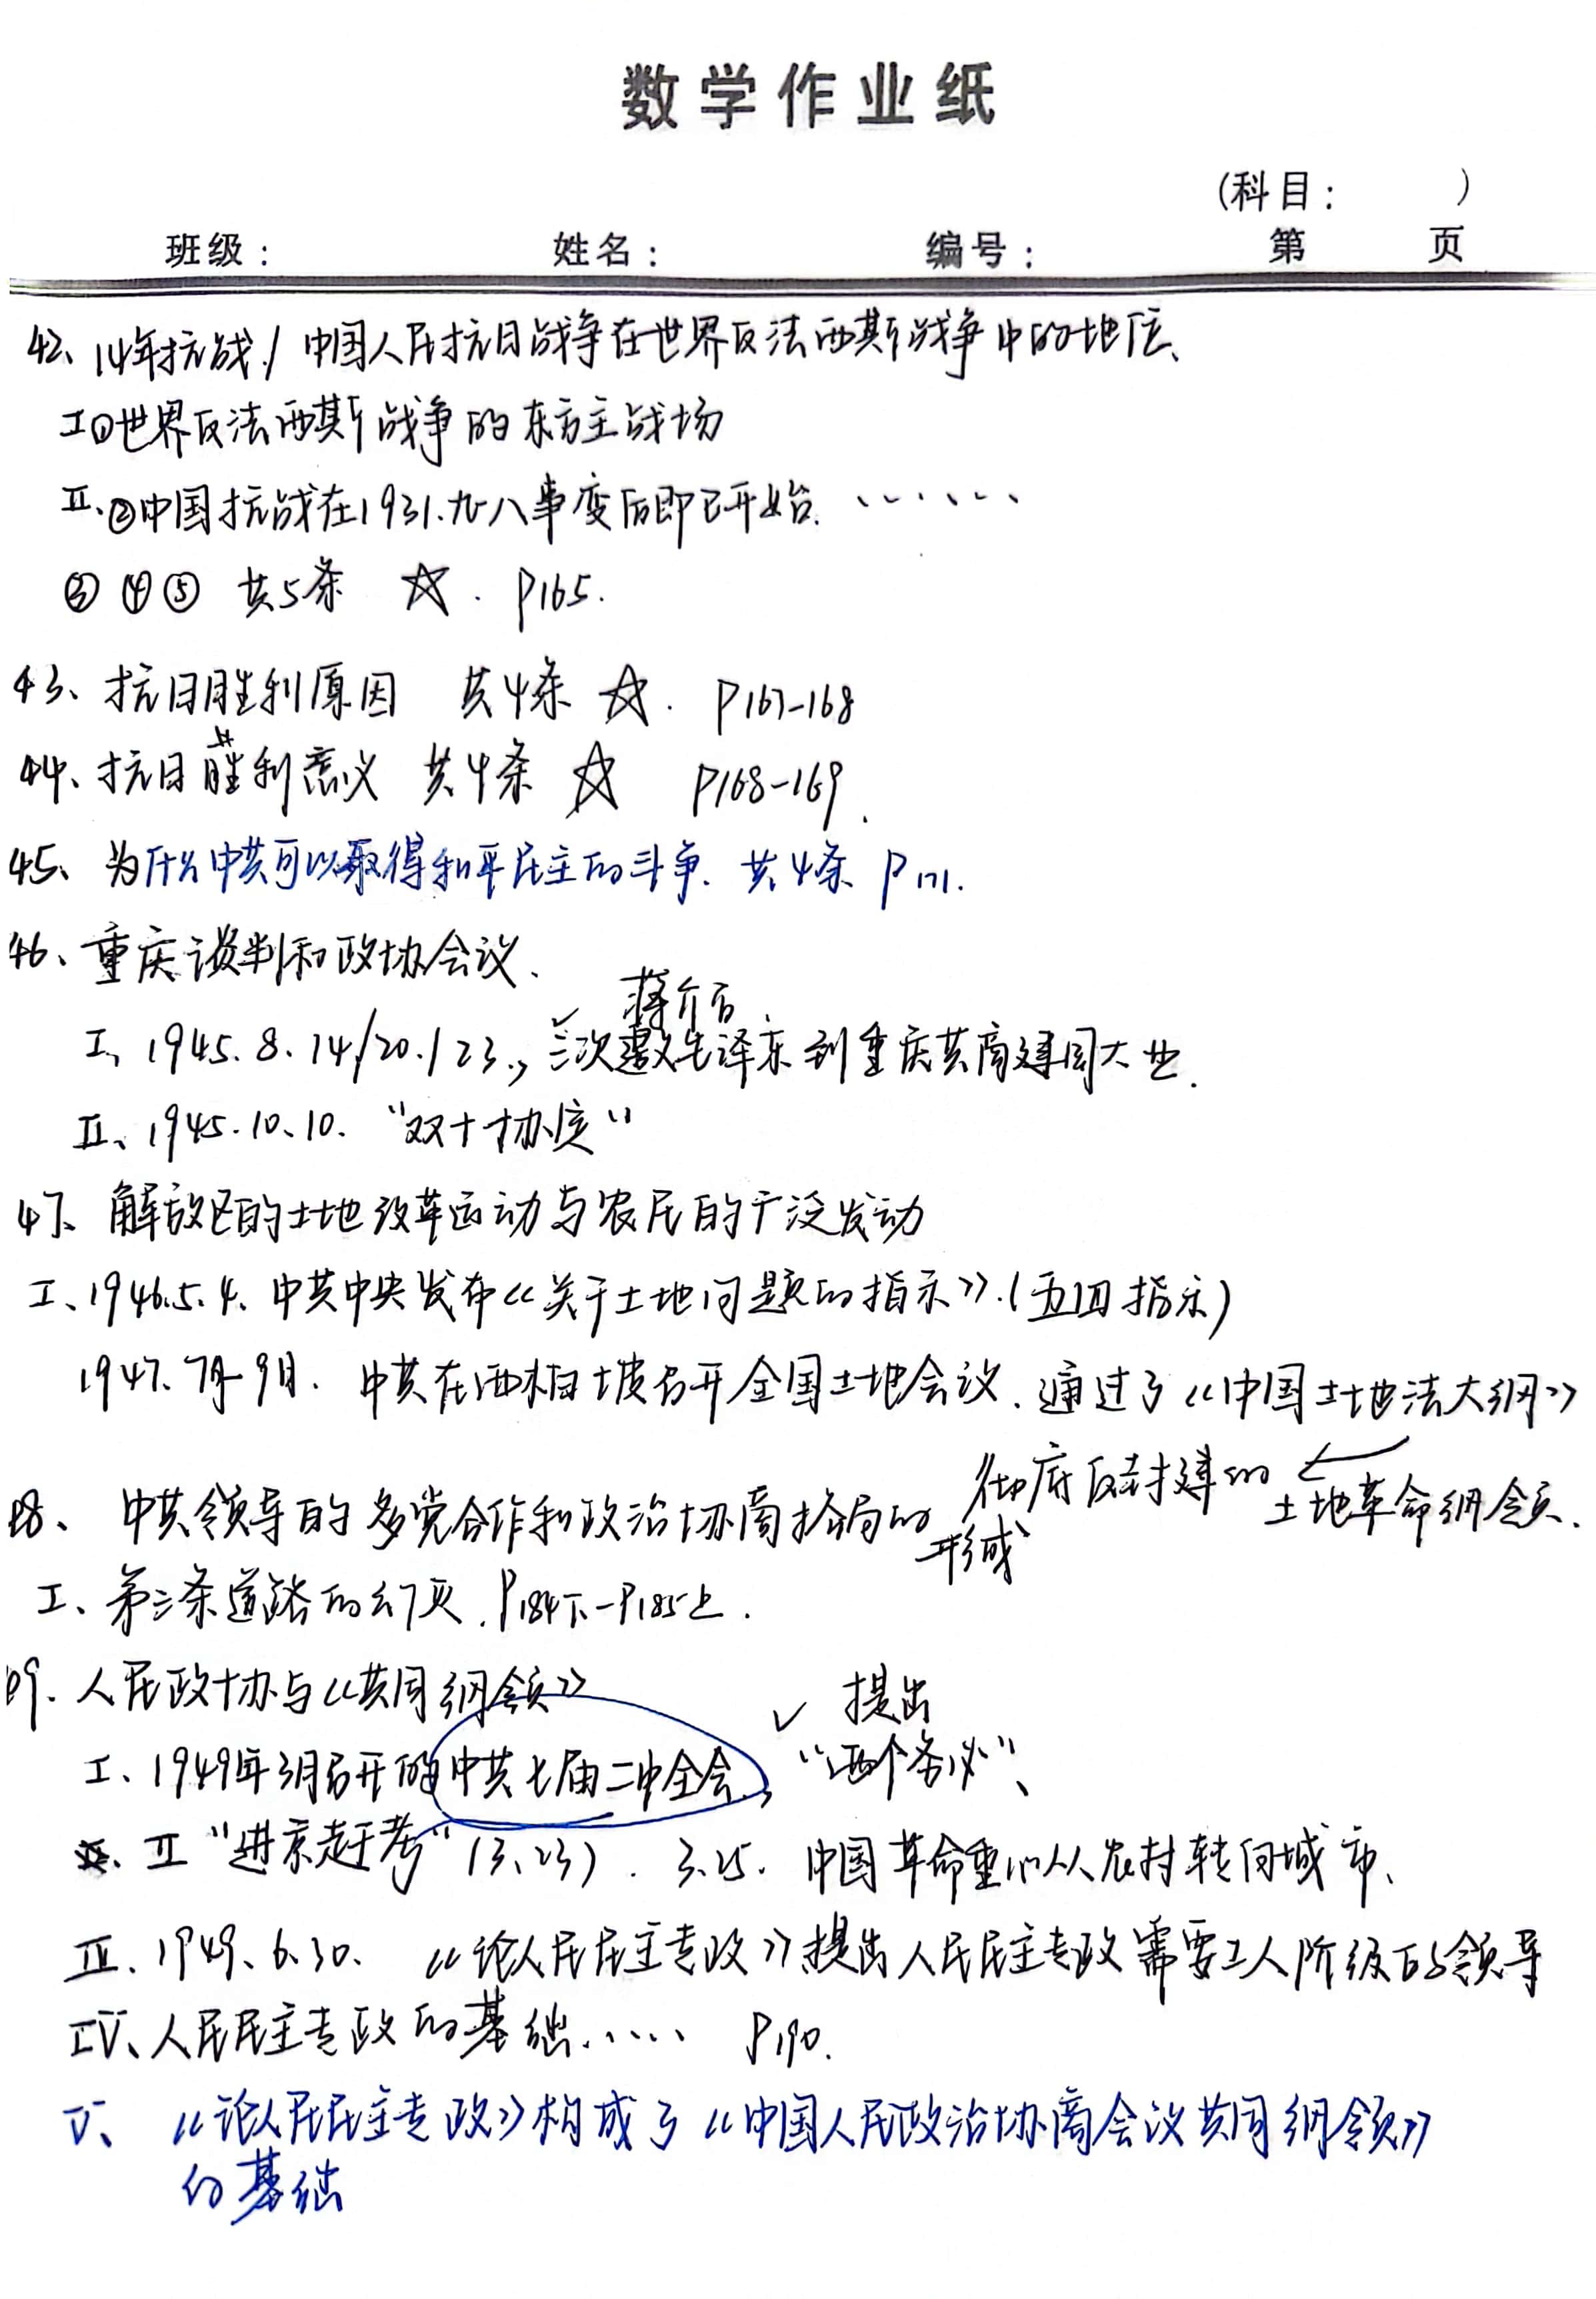 数学作业纸
(科目： )
班级： 姓名： 编号： 第 页
42、14年抗战/中国人民抗日战争在世界反法西斯战争中的地位、
I①世界反法西斯战争的东方主战场
II.②中国抗战在1931.九一八事变后即已开始. 、、、、、、
③ ④ ⑤ 共5条 ☆. P165.
43、抗日胜利原因 共4条 ☆. P167-168
44、抗日胜利意义 共4条 ☆ P168-169.
45、为什么中共可以取得和平民主的斗争. 共4条 P171.
46、重庆谈判和政协会议、
蒋介石
I、1945.8.14/20/23., 三次邀毛泽东到重庆共商建国大业.
II、1945.10.10. “双十协定”
47、解放区的土地改革运动与农民的广泛发动
I、1946.5.4. 中共中央发布《关于土地问题的指示》.(五四指示)
1947.7月-9月. 中共在西柏坡召开全国土地会议.通过了《中国土地法大纲》
彻底反封建的土地革命纲领.
48、中共领导的多党合作和政治协商格局的形成
I、第三条道路的幻灭.P184下-P185上.
49.人民政协与《共同纲领》
I、1949年3月召开的中共七届二中全会., ✓提出“两个务必”、
II “进京赶考”(3.23). 3.25. 中国革命重心从农村转向城市、
III.1949.6.30、《论人民民主专政》提出人民民主专政需要工人阶级的领导
IV、人民民主专政的基础..... P190.
V、《论人民民主专政》构成了《中国人民政治协商会议共同纲领》
的基础